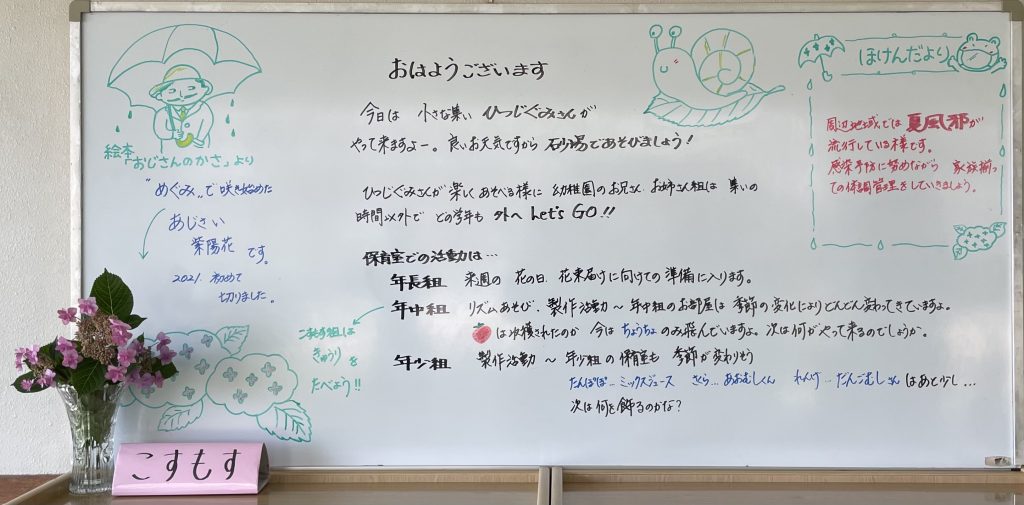 おはようございます
今日は 小さな集い ひつじぐみさんが
やって来ますよー。良いお天気ですから 石り場であそびましょう!
ひつじぐみさんが 楽しくあそべる様に 幼稚園のお兄さん お姉さん組は 集いの
時間以外で どの学年も 外へ Let's GO!!
保育室での活動は…
年長組 来週の 花の日 花束届けに向けての 準備に入ります。
年中組 リズムあそび、製作活動〜 年中組のお部屋は 季節の変化によりどんどん変わってきていますよ。
は収穫されたのか 今は ちょうちょ のみ飛んでいますよ。次は何がやって来るのでしょうか。
年少組 製作活動〜 年少組の保育室も 季節が変わりそう
たんぽぽ… ミックスジュース さくら… あおむしくん れんげ …だんごむしさん はあと少し…
次は 何を飾るのかな?
絵本
「おじさんのかさ」より
"めぐみ"で咲き始めた
あじさい
紫陽花 です。
2021. 初めて
切りました。
こすもす組は
きゅうり を
たべよう!!
ほけんだより
周辺地域では 夏風邪が
流行している様です。
感染予防に努めながら 家族揃っ
ての体調管理をしていきましょう。
こすもす